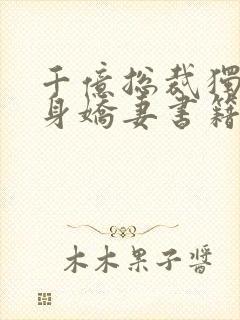 千億總裁獨
身嬌妻書籍
木木果子醬